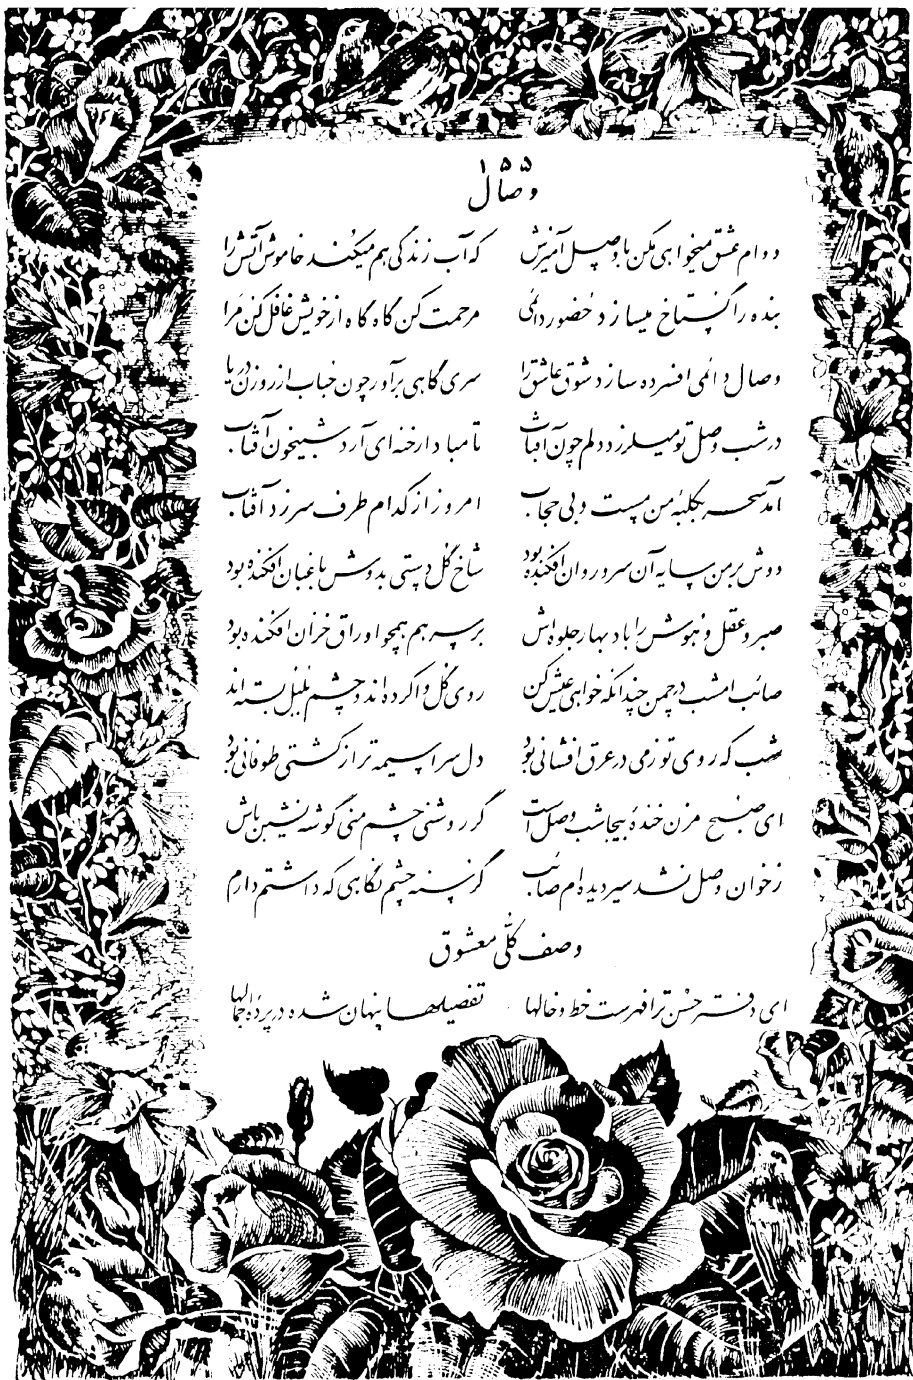 ۱۵۵
وصال
دوام عشق میخواهی مکن با وصل آمیزش که آب زندگی هم میکند خاموش آتش را
بنده را گستاخ میسازد حضور دائمی مرحمت کن گاه گاه از خویش غافل کن مرا
وصال دائمی افسرده سازد شوق عاشق را سری گاهی برآور چون حباب از روزن دریا
در شب وصل تو میلرزد دلم چون آفتاب تا مبادا رخنه‌ای آرد شبیخون آفتاب
آمد سحر بکلبهٔ من مست و بی حجاب امروز از کدام طرف سر زد آفتاب
دوش بر من سایه آن سرو روان افکنده بود شاخ گل دستی بدوش باغبان افکنده بود
صبر و عقل و هوش را باد بهار جلوه‌اش بر سر هم همچو اوراق خزان افکنده بود
صائب امشب در چمن چندانکه خواهی عیش کن روی گل وا کرده‌اند و چشم بلبل بسته‌اند
شب که روی تو ز می در عرق افشانی بود دل سراسیمه‌تر از کشتی طوفانی بود
ای صبح مزن خندهٔ بیجا شب وصل است گر روشنی چشم منی گوشه نشین باش
ز خوان وصل نشد سیر دیده‌ام صائب گرسنه چشم نگاهی که داشتم دارم
وصف کلی معشوق
ای دفتر حسن ترا فهرست خط و خالها تفصیلها پنهان شده در پرده اجمالها